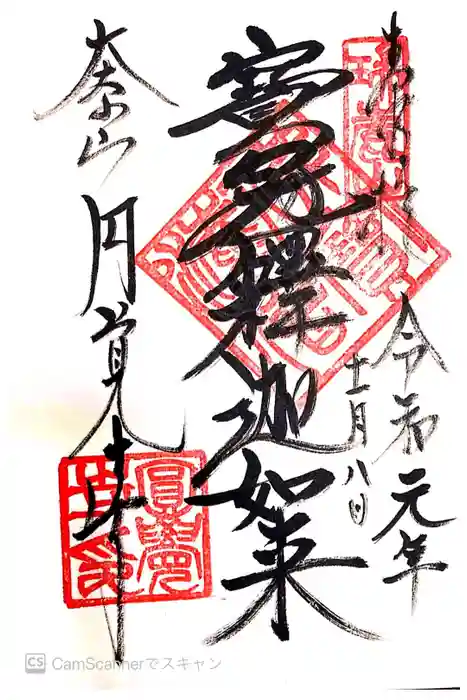 奉拝
令和元年
十一月八日
寳冠釋迦如来
円覚寺
CS CamScannerでスキャン